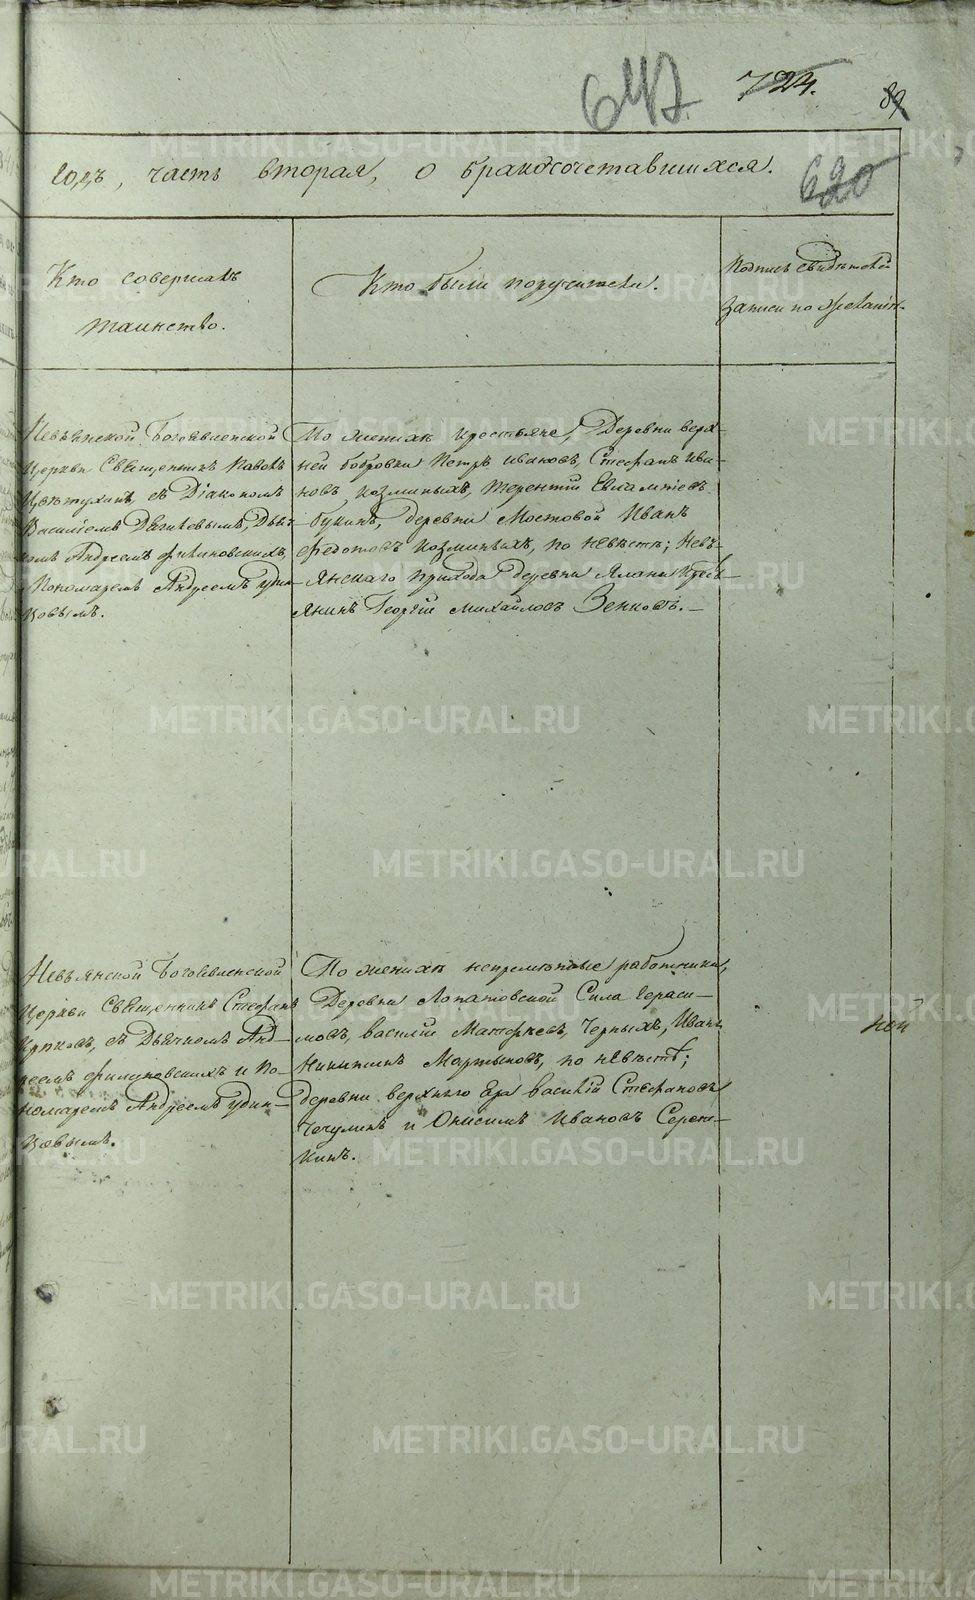 647.
724.
89.
620
годъ, часть вторая, о бракосочетавшихся.
Кто совершалъ
таинство.
Кто были поручители.
Подпись свидѣтелей
записи по желанію.
Невьянской Богоявленской
Церкви Священникъ Павелъ
Цвѣтухинъ, съ Діакономъ
Василіемъ Дьяч-
комъ Андреемъ Филиповскихъ,
и Пономаремъ Андреемъ Удин-
цовымъ.
По женихѣ крестьяне, Деревни верх-
ней бобровки Петръ Ивановъ, Стефанъ Ива-
новъ козминыхъ, Терентій Евлампіевъ
букинъ, деревни Мостовой Иванъ
Федотовъ козминыхъ, по невѣстѣ; Невь-
янскаго прихода деревни Ялани Крестъ-
янинъ Георгій Михайловъ Зенковъ.
Невьянской Богоявленской
Церкви Священникъ Стефанъ
съ Дьячкомъ Анд-
реемъ Филиповскихъ и По-
номаремъ Андреемъ Удин-
цовымъ.
По женихѣ непремѣнные работники,
Деревни Лопатовской Сила Гераси-
мовъ, Василій Матфеевъ, Черныхъ, Иванъ
Никитинъ Мартыновъ, по невѣстѣ;
Деревни верхняго Яра Василій Стефановъ
Чечулинъ и Онисимъ Ивановъ Серег-
кинъ.
METRIKI.GASO-URAL.RU